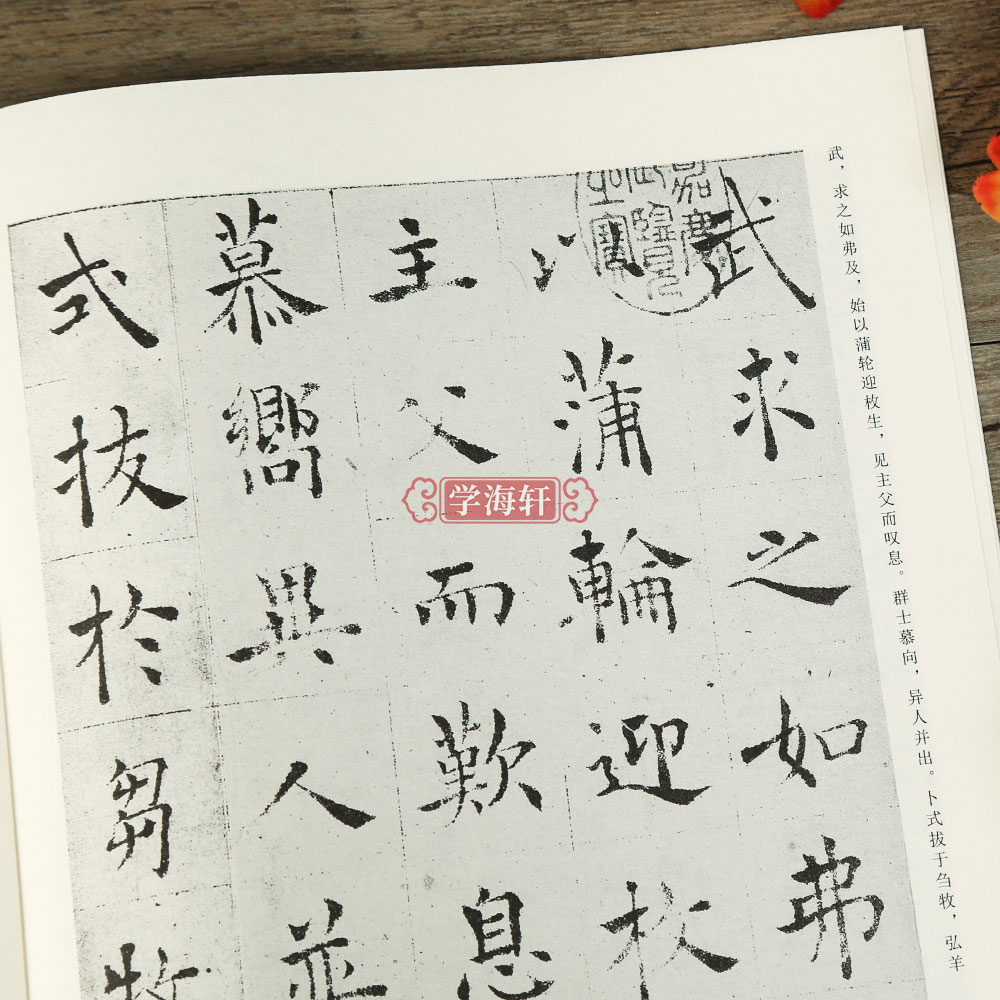 武求之如弗
以蒲輪迎枚
主父而歎息
慕嚮異人並
式拔於芻牧
武，求之如弗及，始以蒲轮迎枚生，见主父而叹息。群士慕向，异人并出。卜式拔于刍牧，弘羊
学海轩